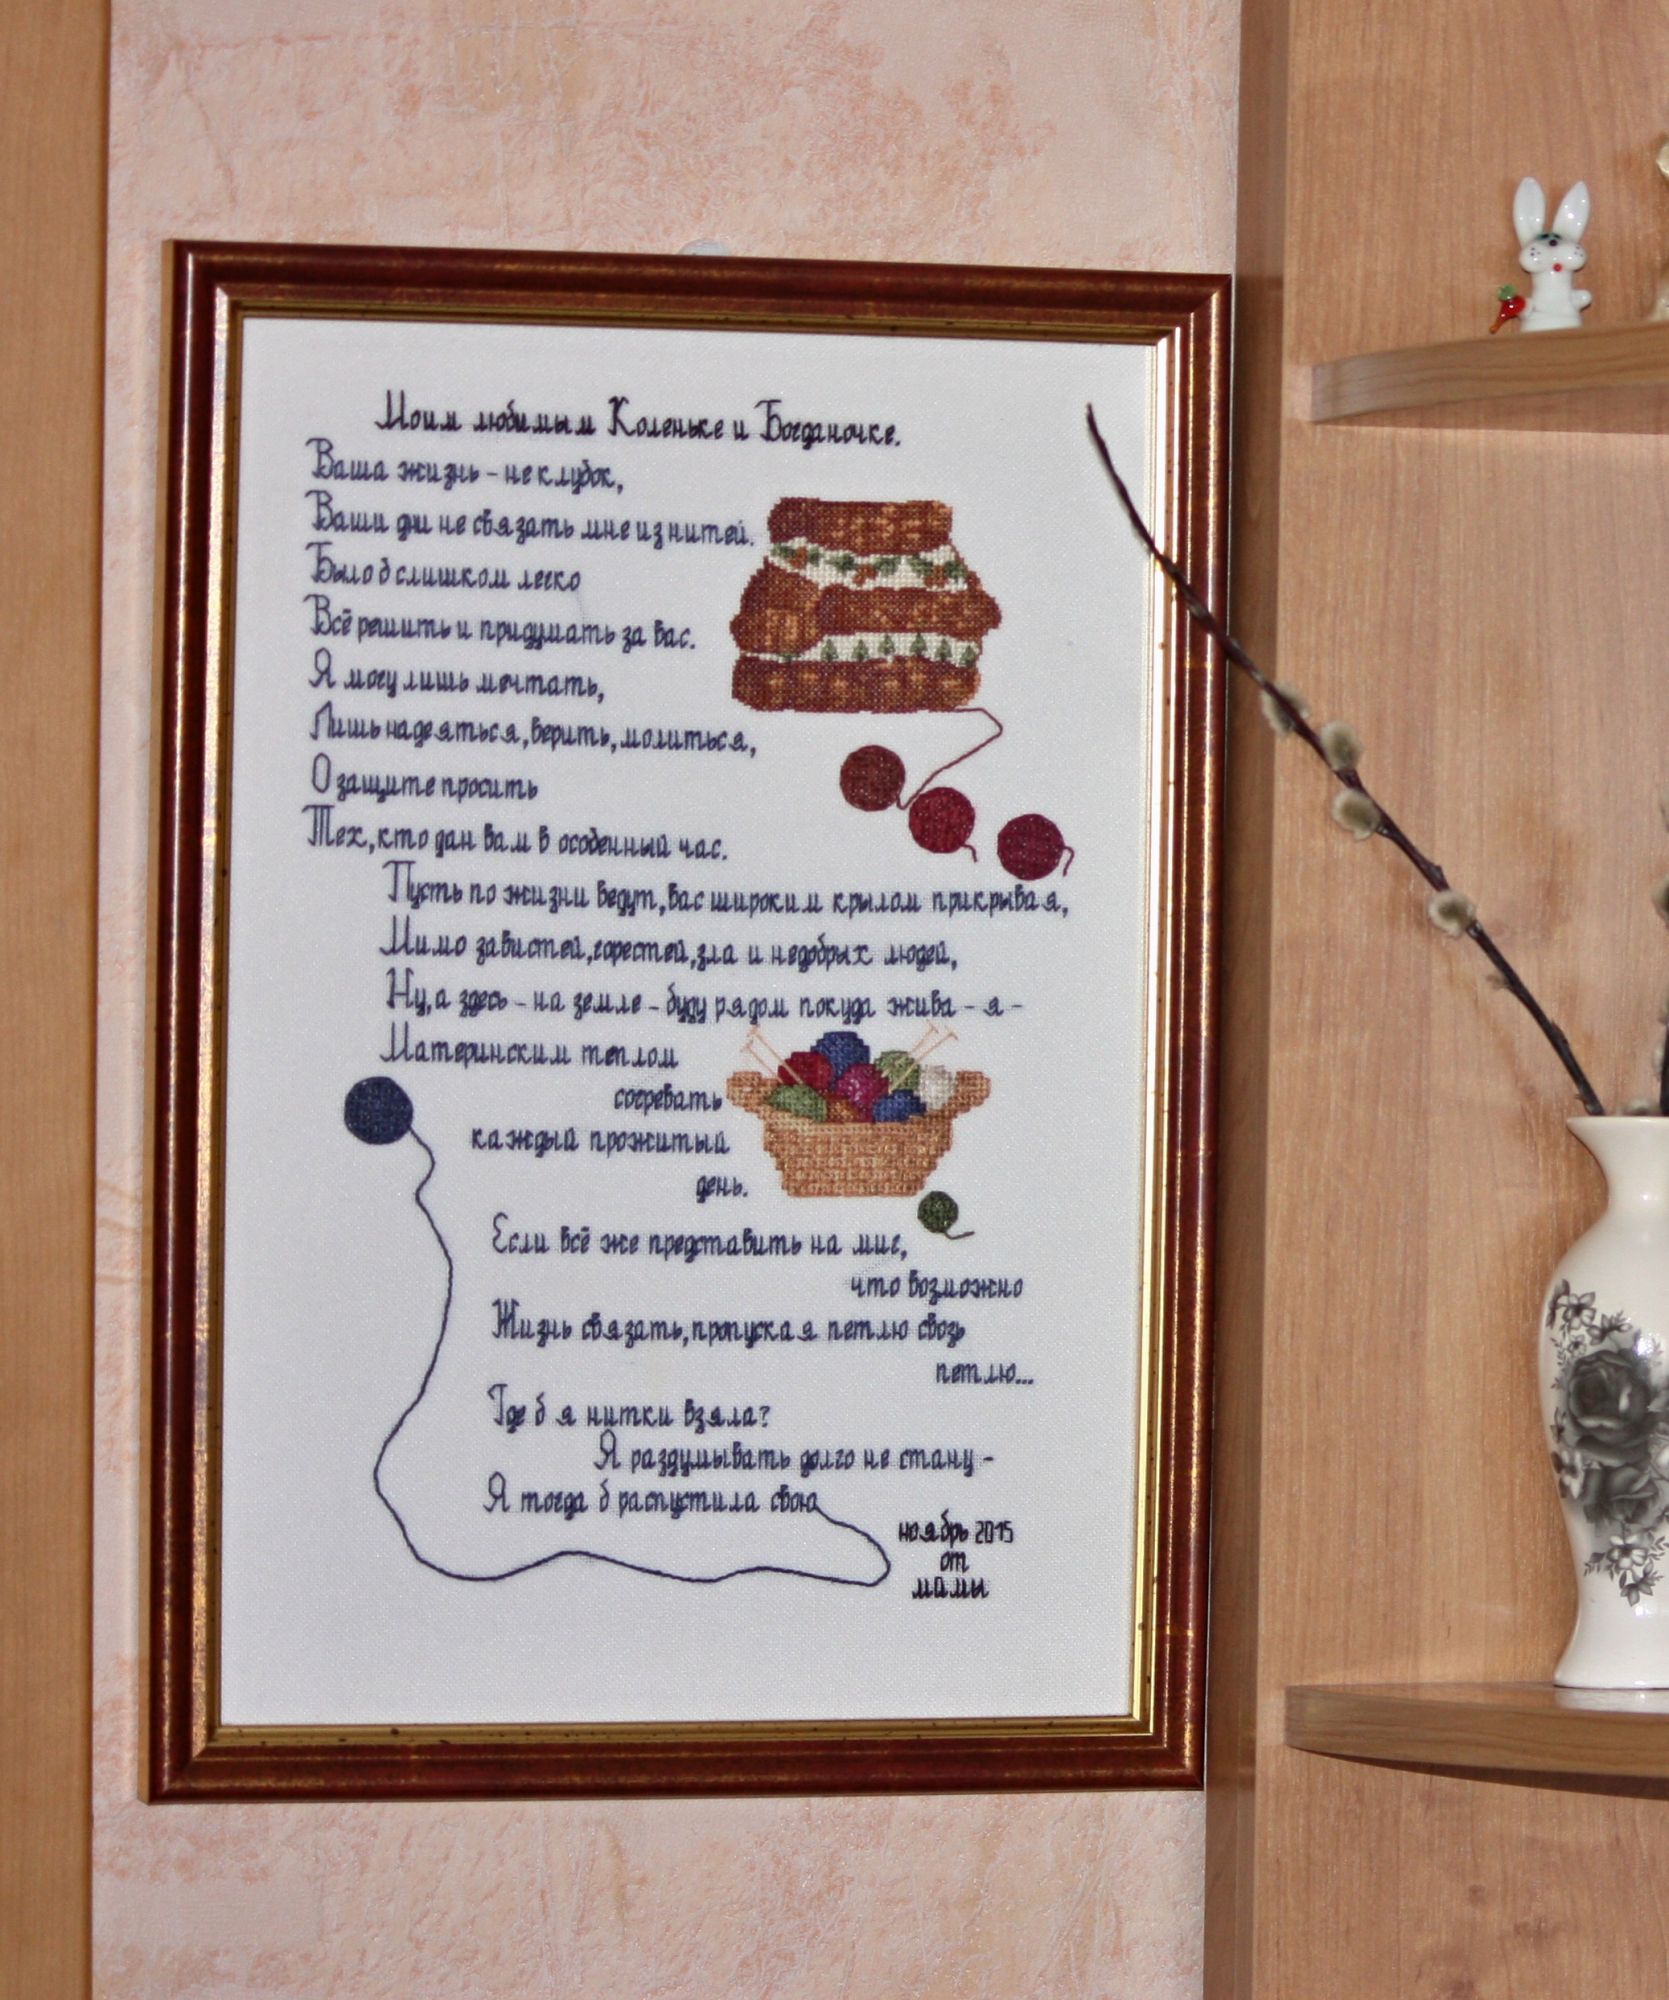 Моим любимым Коленьке и Богданочке.
Ваша жизнь - не клубок,
Ваши дни не связать мне из нитей.
Было б слишком легко
Всё решить и придумать за вас.
Я могу лишь мечтать,
Лишь надеяться, верить, молиться,
О защите просить
Тех, кто дан вам в особенный час.
Пусть по жизни ведут, вас широким крылом прикрывая,
Мимо завистей, горестей, зла и недобрых людей,
Ну, а здесь - на земле - буду рядом покуда жива - я -
Материнским теплом
согревать
каждый прожитый
день.
Если всё же представить на миг,
что возможно
Жизнь связать, пропуская петлю свозь
петлю...
Где б я нитки взяла?
Я раздумывать долго не стану -
Я тогда б распустила свою
ноябрь 2015
от
мамы